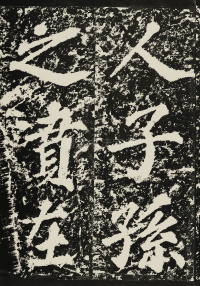 人子孫
之責在